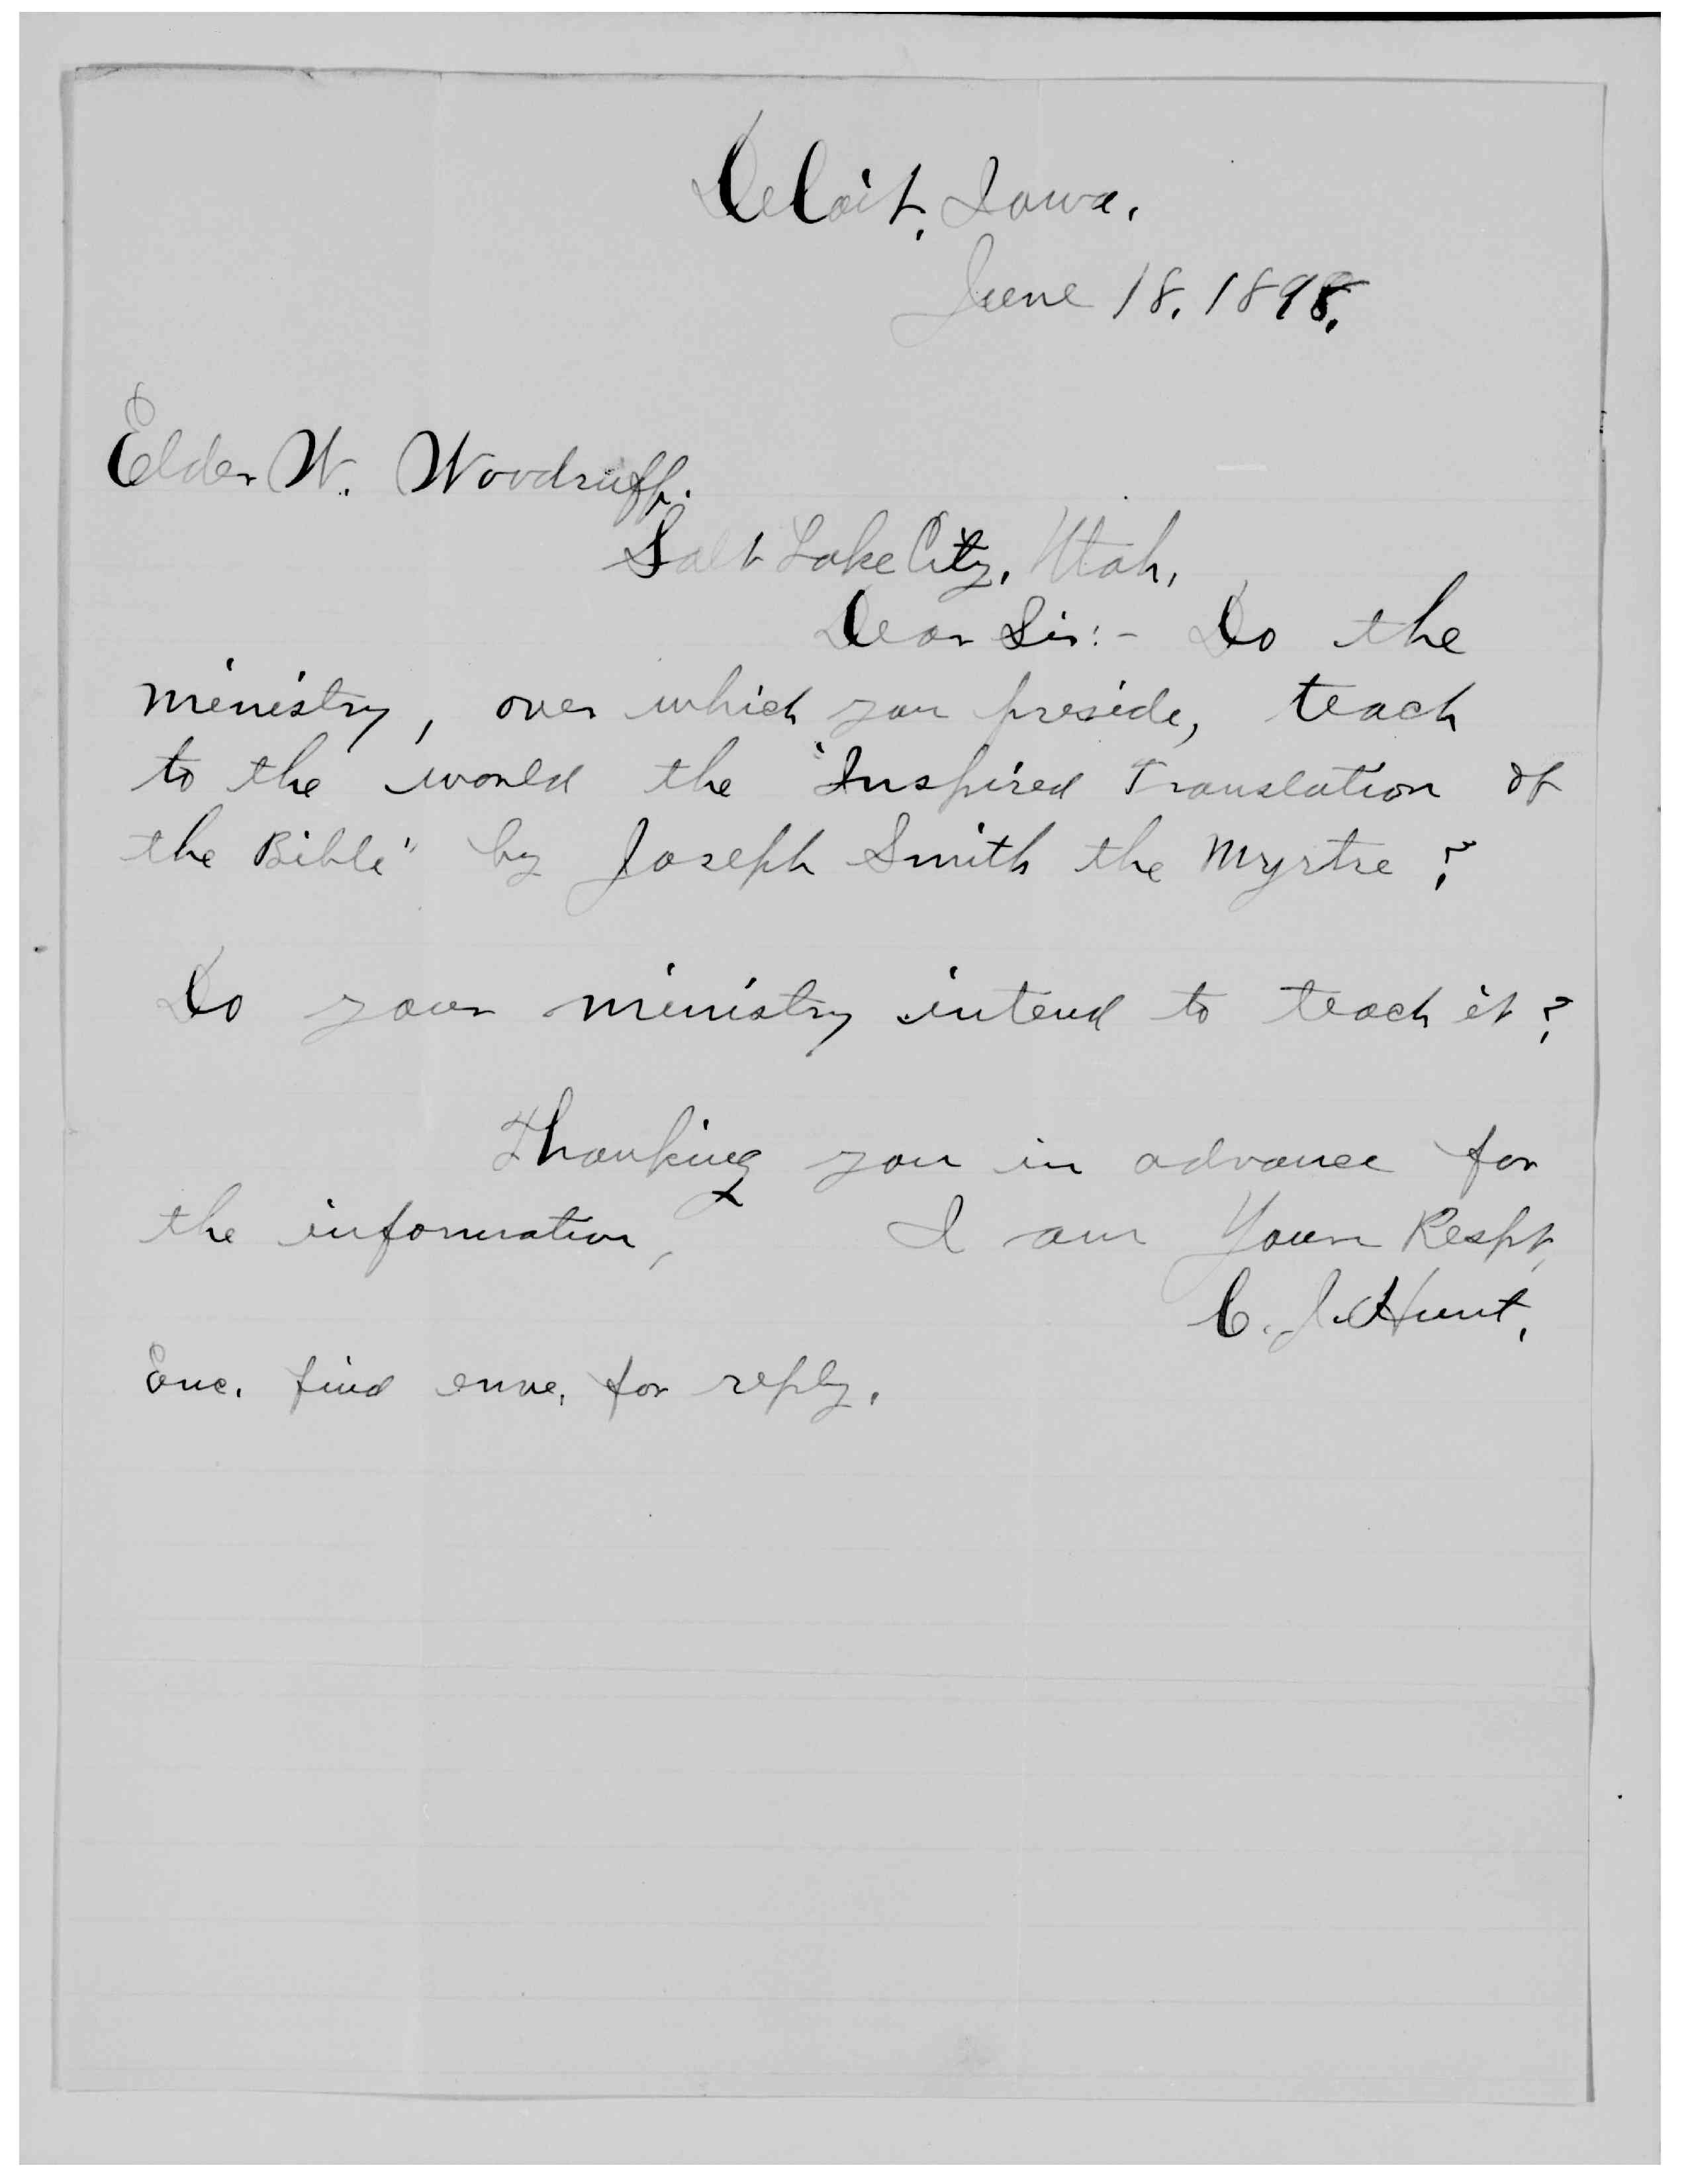 Deloit, Iowa.
June 18, 1898.
Elder W. Woodruff.
Salt Lake City, Utah,
Dear Sir:- Do the
ministry, over which you preside, teach
to the world the "Inspired Translation of
the Bible" by Joseph Smith the Myrtre?
Do your ministry intend to teach it?
Thanking you in advance for
the information, I am Yours Respt,
C. J. Hunt,
Enc. find enve, for reply.